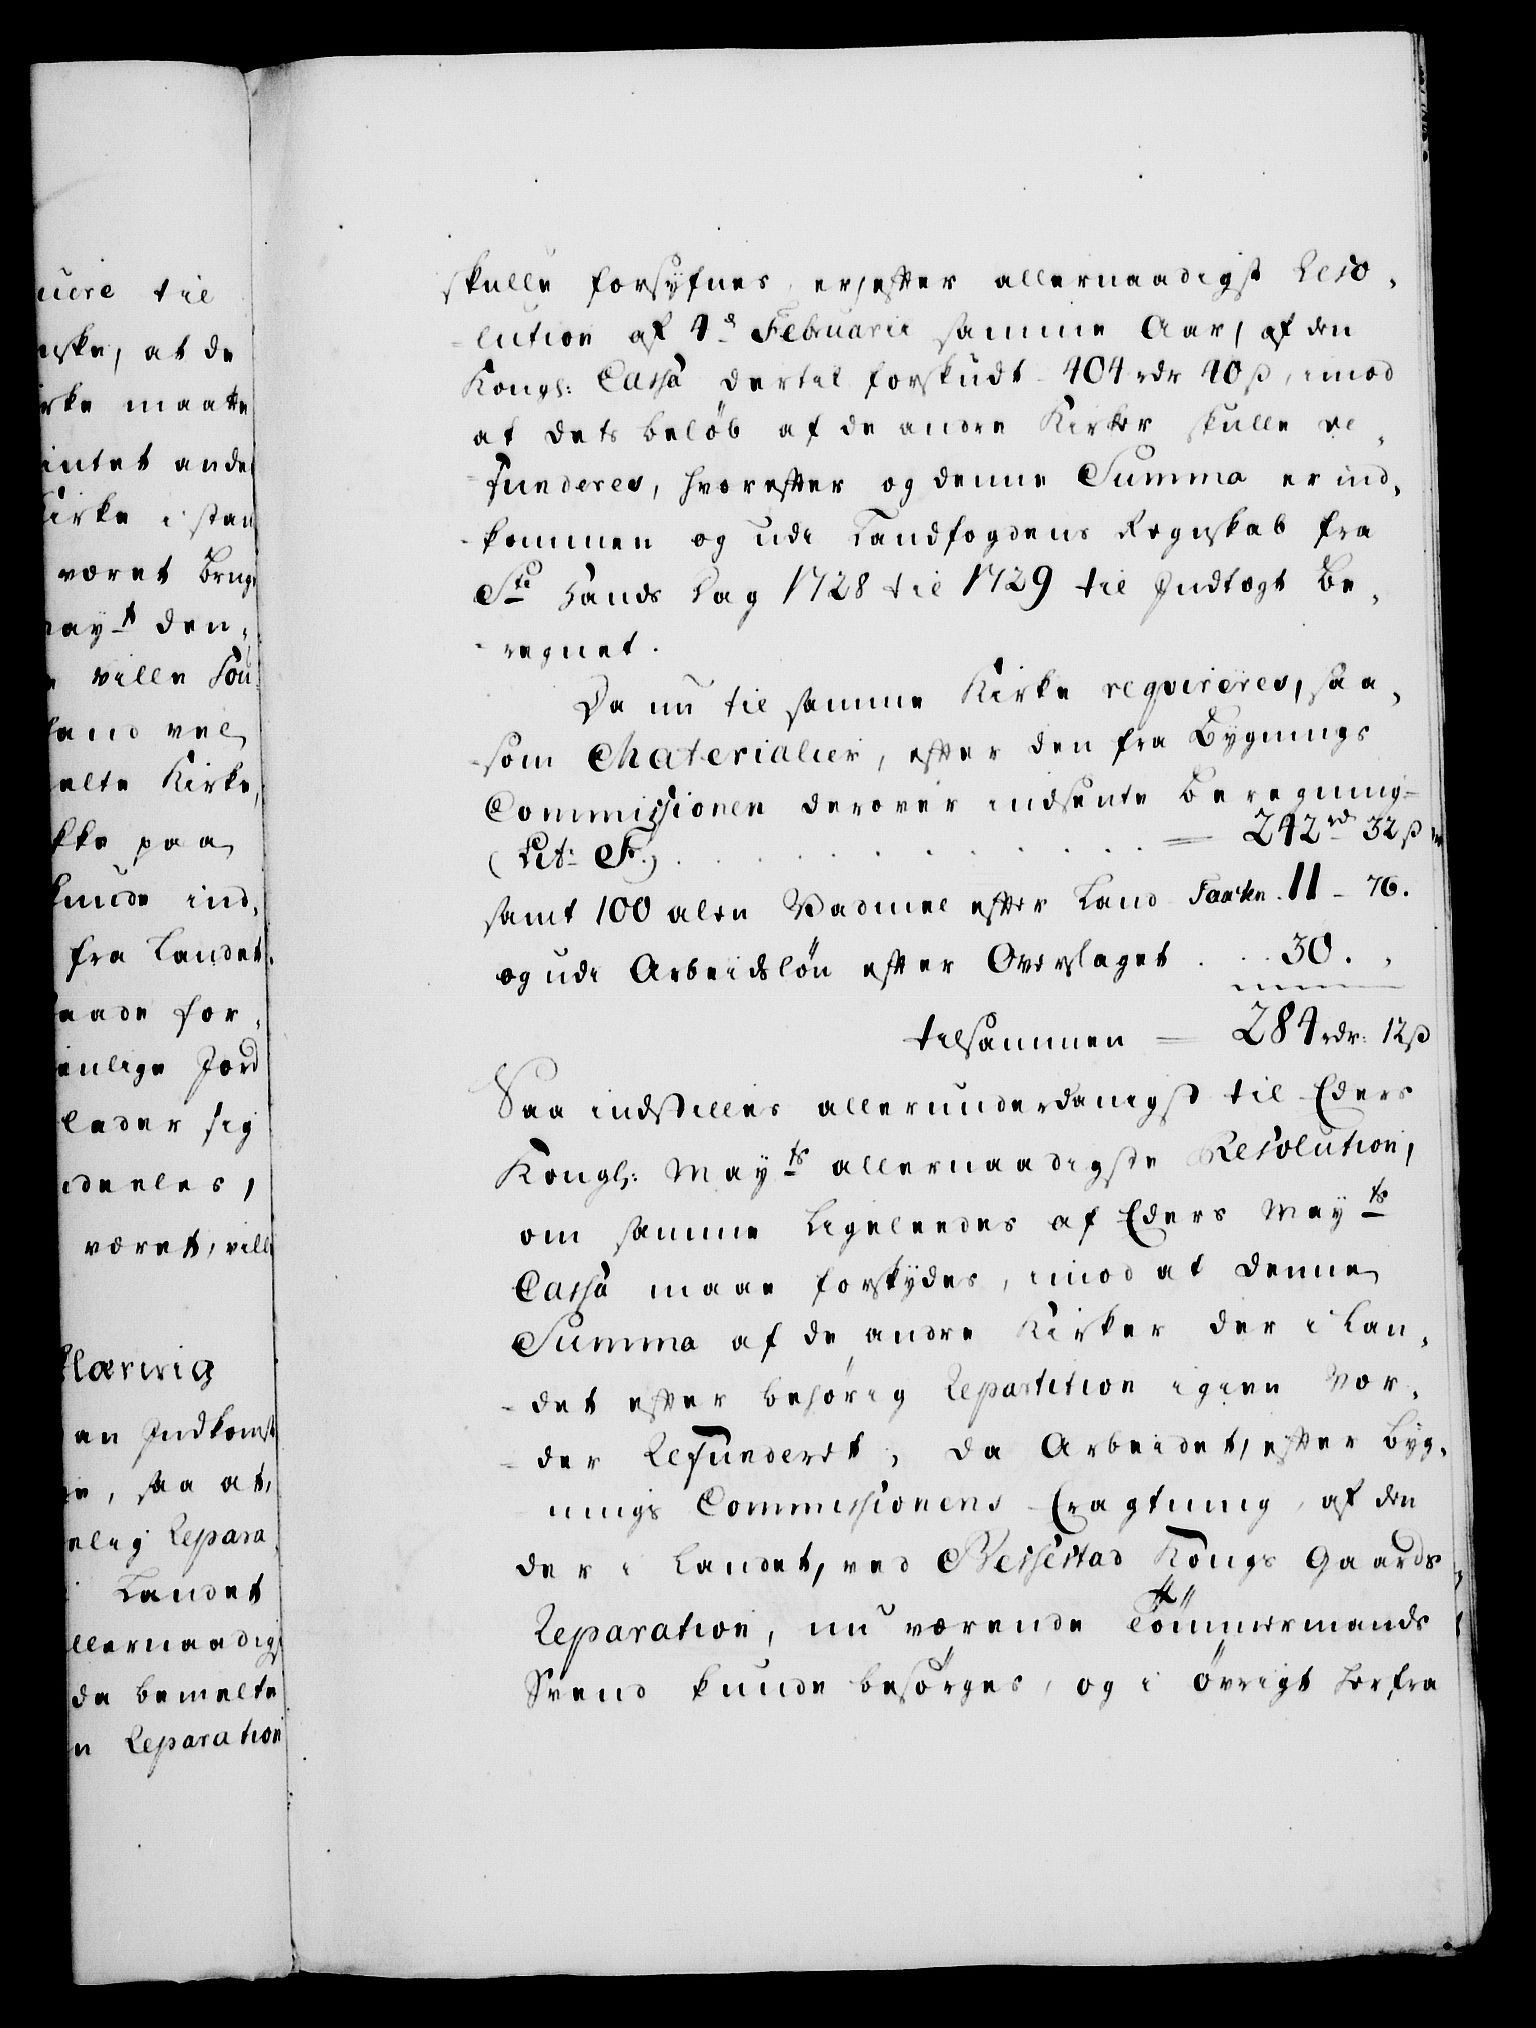 uere til
nske, at de
irke maatte
intet andet
Kirke i stan
været Brug
May.t den¸
ville Sou
land vel
elte Kirke,
kke paa
kunde ind¸
fra Landet.
aade for¸
enlige Jord
lader sig
ideeles,
været, vill
Hlærwig
an Indkomst
e, saa at,
elig Repara
Landet
llernaadigs
da bemelte
n Reparation
skulle forsÿfnes, er, efter allernaadigst Reso¸
-lution af 4.e Februarii samme Aar, af den
Kongl: Cassa dertil forskudt 404 rdr 40 ß, imod
at dets beløb af de andre Kirker skulle re¸
-funderes, hvorefter og denne Summa er ind¸
-kommen og udi Landfogdens Regnskab fra
S.te Hands Dag 1728 til 1729 til Indtægt be¸
-regnet.
Da nu til samme Kirke reqvireres, saa¸
-som Materialier, efter den fra Bygnings
Commissionen derover indsente Beregning
(Lit: F.) . . . . . . . = 242 rd 32 ß
samt 100 alen Vadmel efter Land Taxten. 11 - 76.
og udi Arbeidsløn efter Overslaget . . 30. „
tilsammen = 284 rdr: 12 ß
Saa indstilles allerunderdanigst til Eders
Kongl: May.ts allernaadigste Resolution,
om samme ligeleedes af Eders May.ts
Cassa maae forskydes, imod at denne
Summa af de andre Kirker der i Lan¸
-det efter behørig Repartition igien vor¸
-der Refunderet, da Arbeidet, efter Byg¸
nings Commissionens Eragtning, af den
der i Landet, ved Bessested Kongs Gaards
Reparation, nu værende Tømmermands
Svend kunde besørges, og i øvrigt herfra